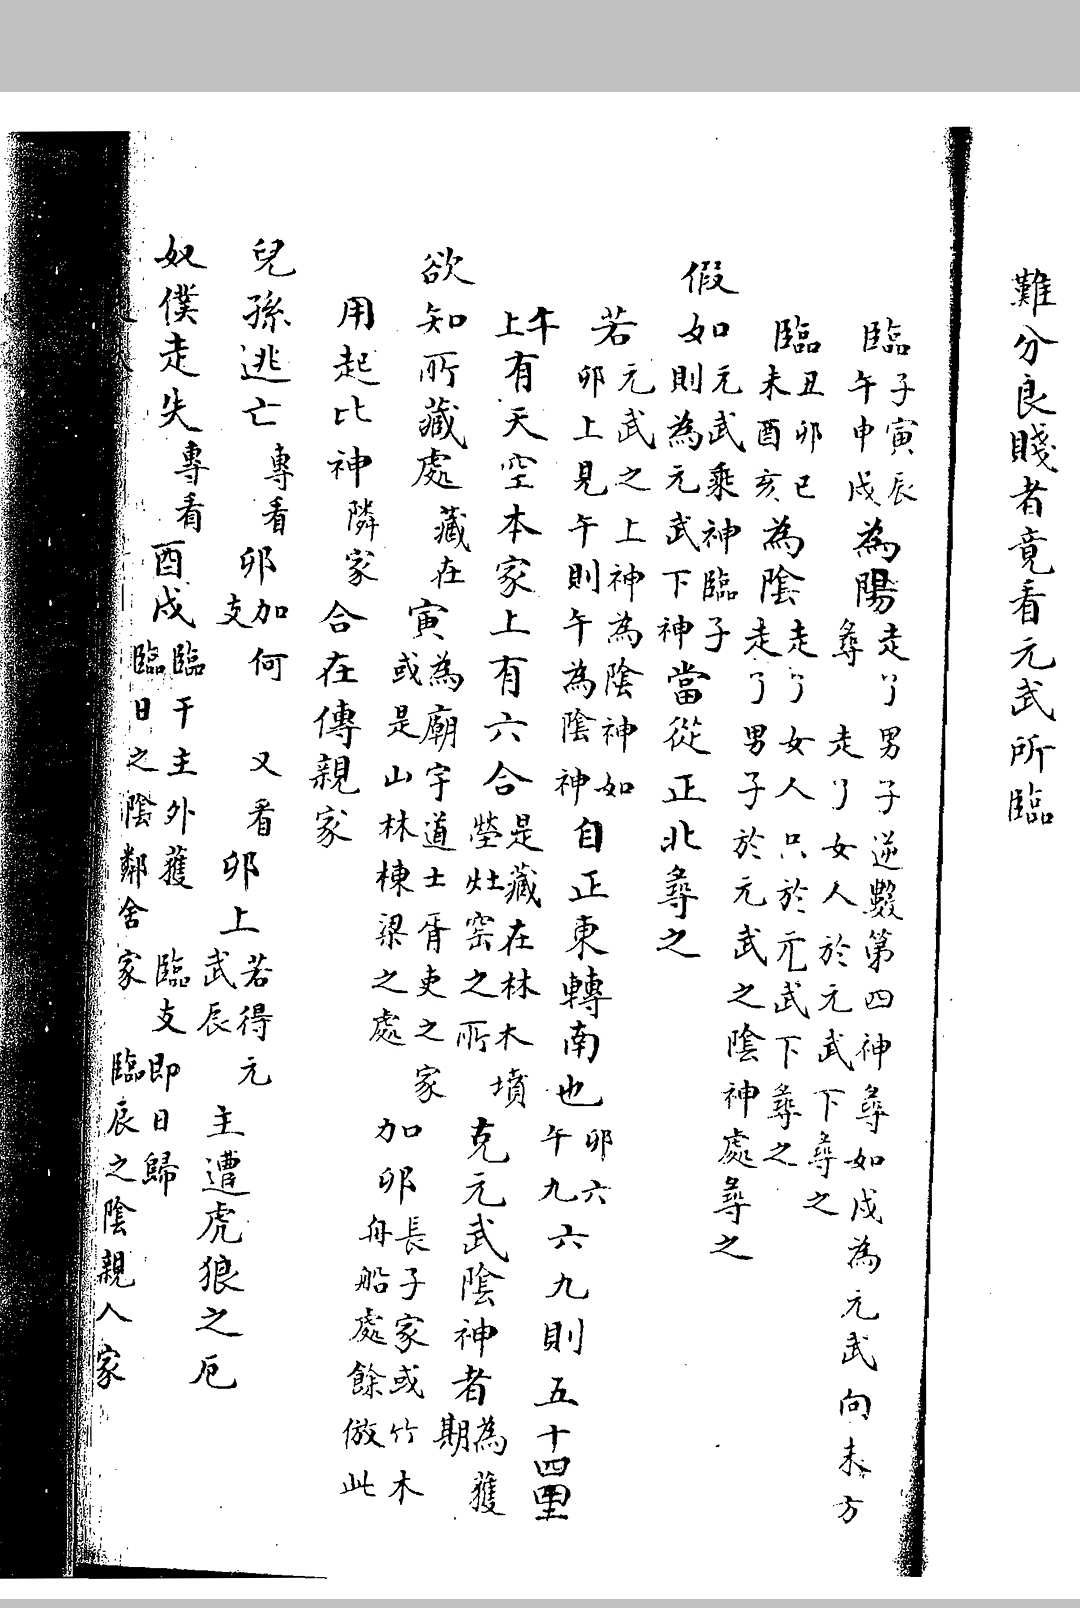 難分良賤者竟看元武所臨
臨子寅辰午申戌為陽走了男子逆數第四神尋如戌為元武向未方尋走了女人於元武下尋之
臨丑卯巳未酉亥為陰走了女人只於元武下尋之走了男子於元武之陰神處尋之
假如元武乘神臨子則為元武下神當從正北尋之
若元武之上神為陰神如卯上見午則午為陰神自正東轉南也卯六午九六九則五十四里
午上有天空本家上有六合是藏在林木墳塋灶窑之所克元武陰神者為獲期
欲知所藏處藏在寅為廟宇道士胥吏之家或是山林棟梁之處加卯長子家或竹木舟船處餘倣此
用起比神隣家合在傳親家
兒孫逃亡專看卯加何支又看卯上若得元武辰主遭虎狼之厄
奴僕走失專看酉戌臨干主外獲臨日之陰鄰舍家臨支即日歸臨辰之陰親人家